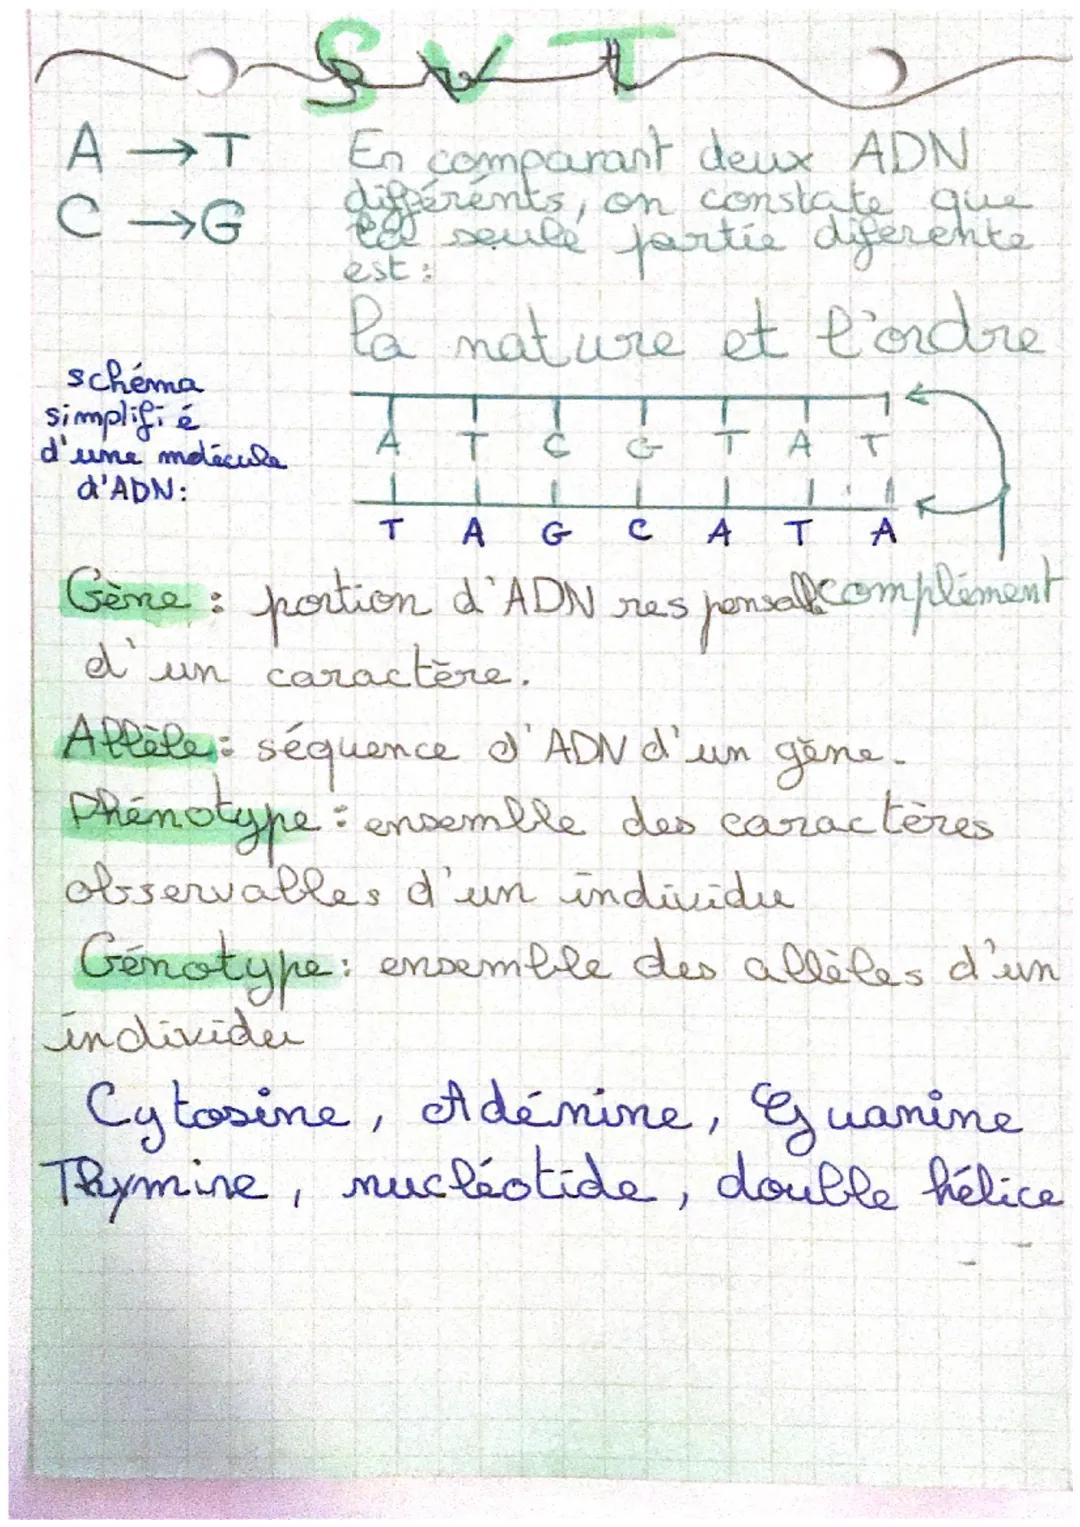 SVT
A → T
C → G
En comparant deux ADN
différents, on constate que
la seule partie diferente
est :
la nature et l'ordre
schéma
simplifié
d'une molécule
d'ADN :
A T C G T A T
T A G C A T A
complément
Gène : portion d'ADN responsable
d'un caractère.
Allèle : séquence d'ADN d'un gène.
Phénotype : ensemble des caractères
observables d'un individu
Génotype : ensemble des allèles d'un
individu
Cytosine, Adénine, Guanine
Thymine, nucléotide, double hélice